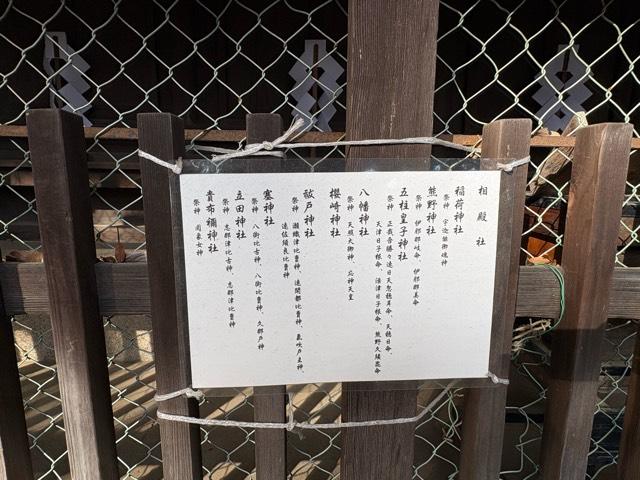 相殿社
稲荷神社
祭神 宇迦能御魂神
熊野神社
祭神 伊邪那岐命、伊邪那美命
五柱皇子神社
祭神 正哉吾勝々速日天忍穂耳命、天穂日命、
天津日子根命、活津日子根命、熊野久須毘命
八幡神社
祭神 天照大御神、応神天皇
櫻崎神社
祓戸神社
祭神 瀬織津比賣神、速開都比賣神、氣吹戸主神、
速佐須良比賣神
塞神社
祭神 八街比古神、八街比賣神、久那戸神
立田神社
祭神 志那津比古神、志那津比賣神
貴布禰神社
祭神 罔象女神